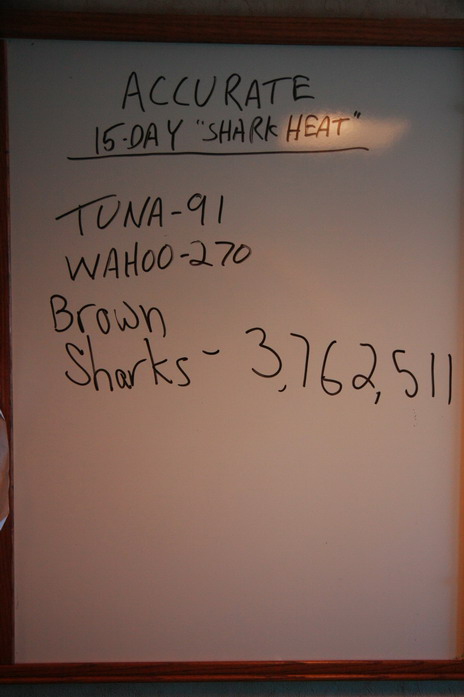 ACCURATE
15-DAY "SHARK HEAT"
TUNA-91
WAHOO-270
Brown
Sharks - 3,762,511